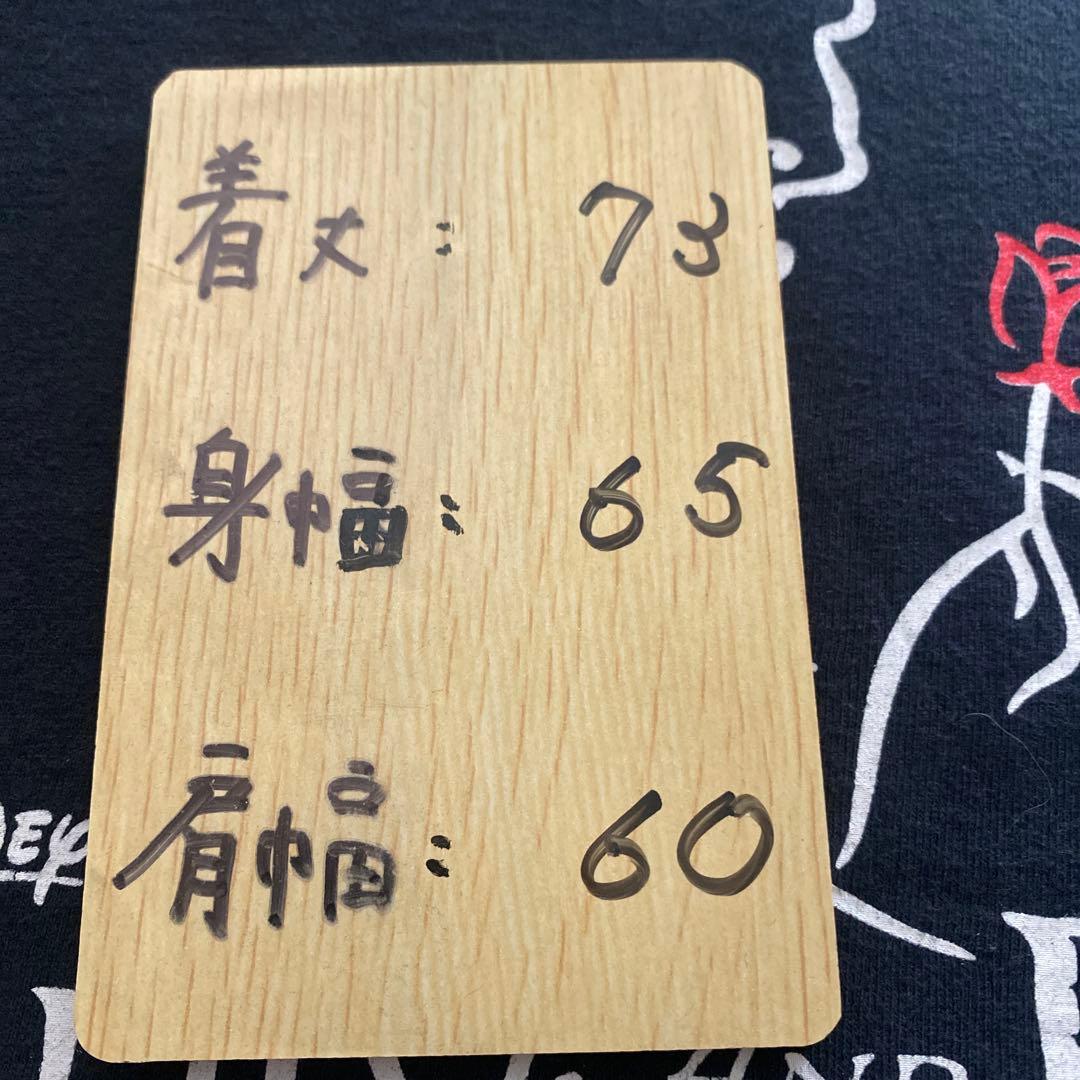 着丈: 73
身幅: 65
肩幅: 60
AND